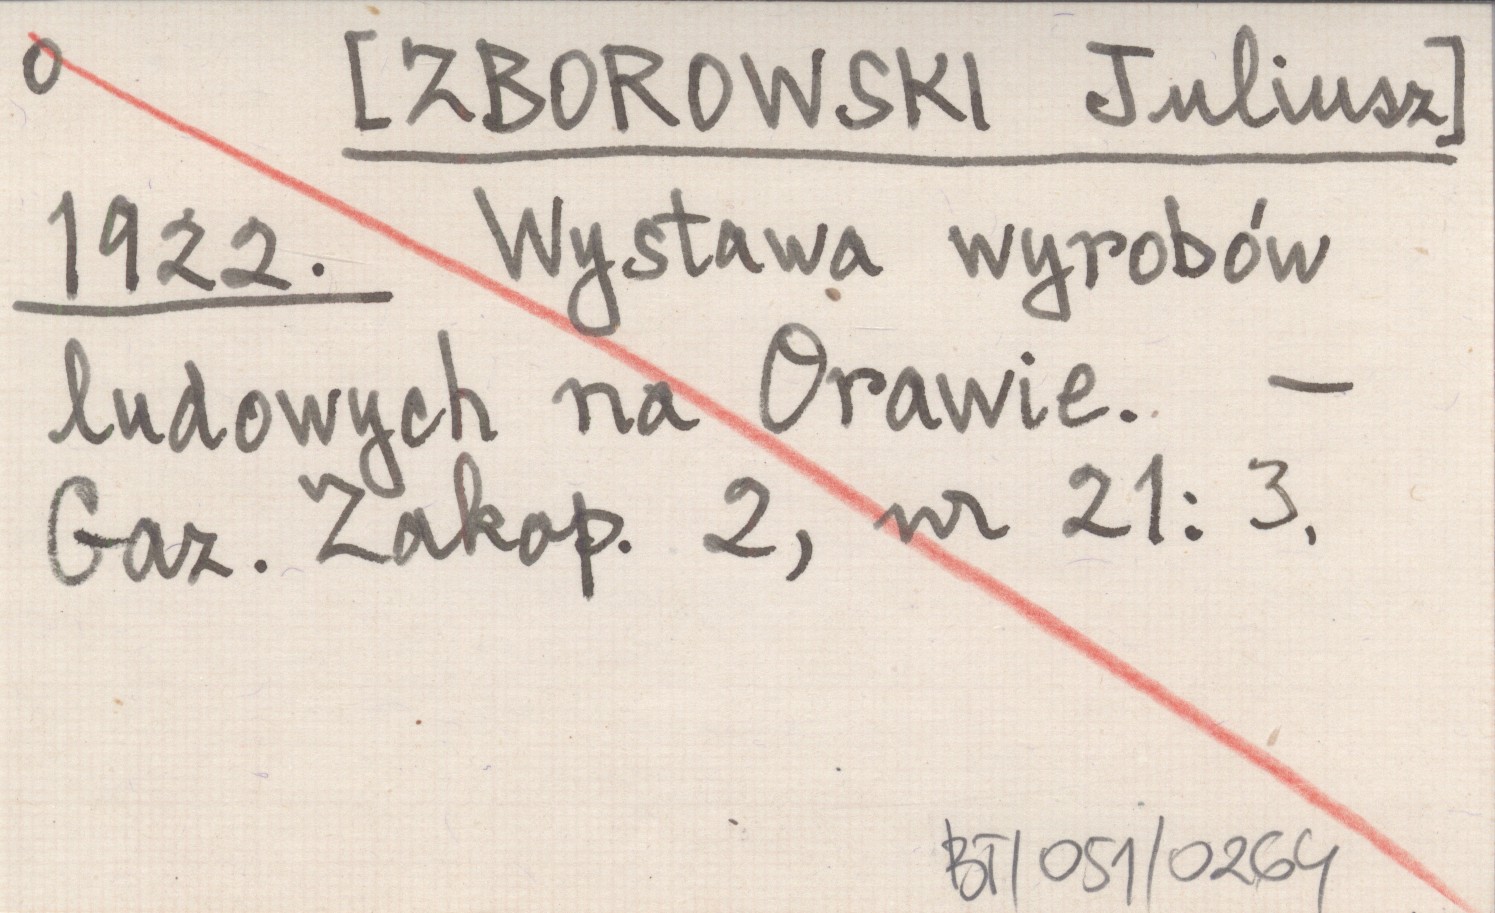 o [ZBOROWSKI Juliusz]
1922. Wystawa wyrobów
ludowych na Orawie. —
Gaz. Zakop. 2, nr 21: 3.
BT/051/0264